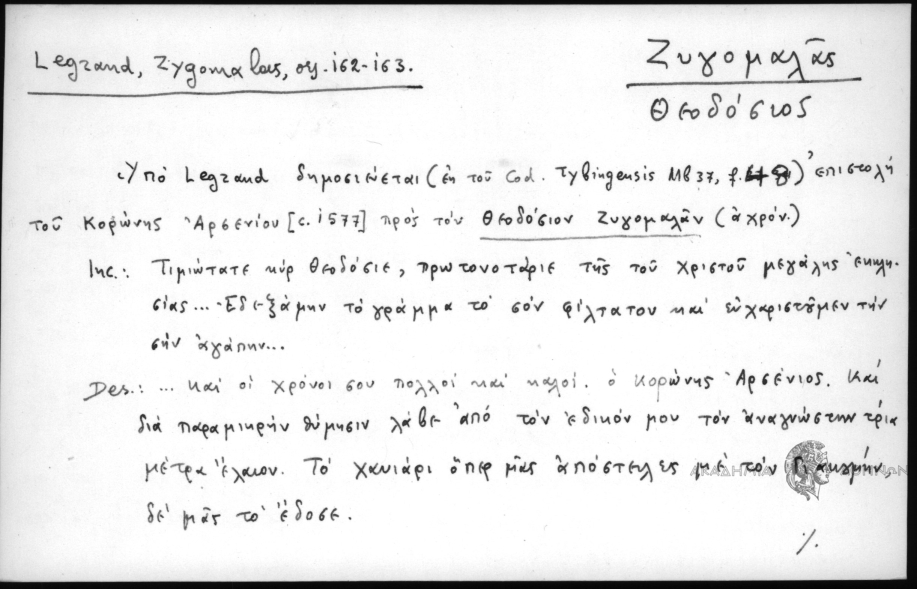 Legrand, Zygomalas, σς. 162-163.
Ζυγομαλᾶς
Θεοδόσιος
Ὑπό Legrand δημοσιεύεται (ἐκ τοῦ Cod. Tybingensis Mb 37, f. 8) ἐπιστολή
τοῦ Κορώνης Ἀρσενίου [c. 1577] πρός τόν Θεοδόσιον Ζυγομαλᾶν (ἀχρόν.)
Inc.: Τιμιώτατε κύρ Θεοδόσιε, πρωτονοτάριε τῆς τοῦ Χριστοῦ μεγάλης ἐκκλη-
σίας... Ἐδεξάμην τό γράμμα τό σόν φίλτατον καί εὐχαριστοῦμεν τήν
σήν ἀγάπην...
Des.: ... καί οἱ χρόνοι σου πολλοί καί καλοί. ὁ Κορώνης Ἀρσένιος. Καί
διά παραμικρήν θύμησιν λάβε ἀπό τόν ἐδικόν μου τόν ἀναγνώστην τρία
μέτρα ἔλαιον. Τό χαυιάρι ὅπερ μᾶς ἀπόστειλες μέ τόν Γιακουμήν,
δέ μᾶς τό ἔδοσε.
ΑΚΑΔΗΜΙΑ
%.